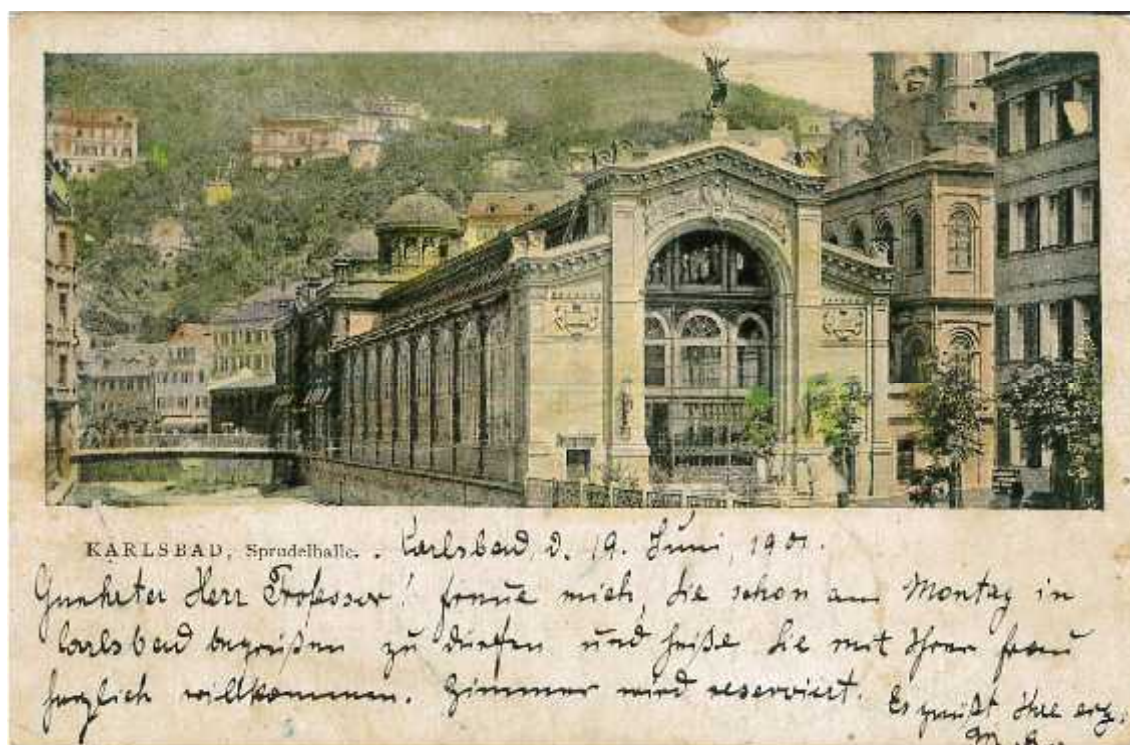 KARLSBAD, Sprudelhalle. Carlsbad d. 19. Juni, 1901.
Geehrter Herr Professor! freue mich, Sie schon am Montag in
Carlsbad begrüßen zu dürfen und heiße Sie mit Ihrer Frau
herzlich willkommen. Zimmer wird reserviert.
Es grüßt Ihre erg.